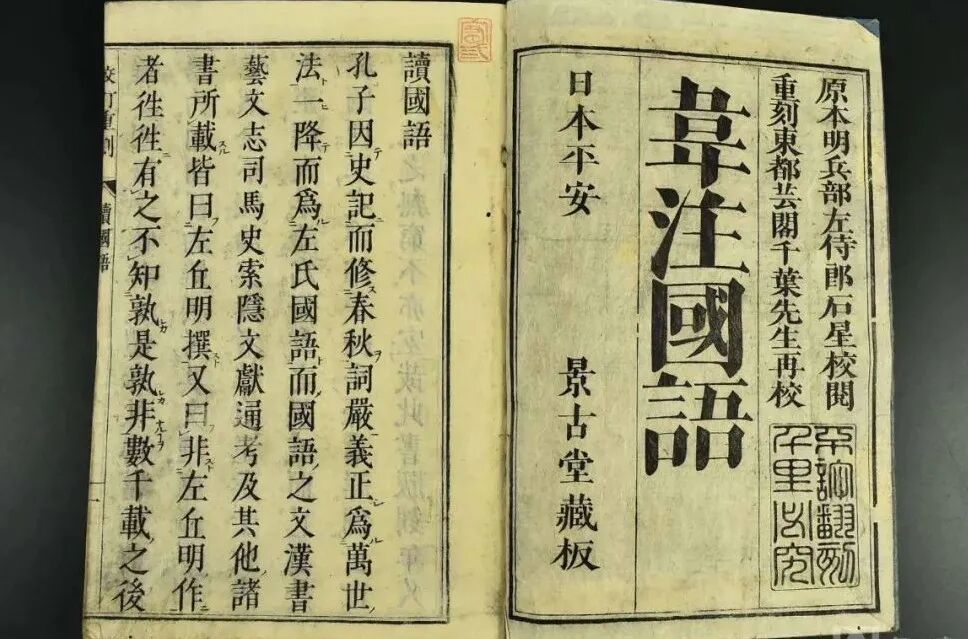 原本明兵部左侍郎石星校閱
重刻東都芸閣千葉先生再校
韋注國語
日本平安 景古堂藏板
讀國語
孔子因史記而修春秋詞嚴義正爲萬世
法一降而爲左氏國語而國語之文漢書
藝文志司馬史索隱文獻通考及其他諸
書所載皆曰左丘明撰又曰非左丘明作
者徃徃有之不知孰是孰非數千載之後
讀國語